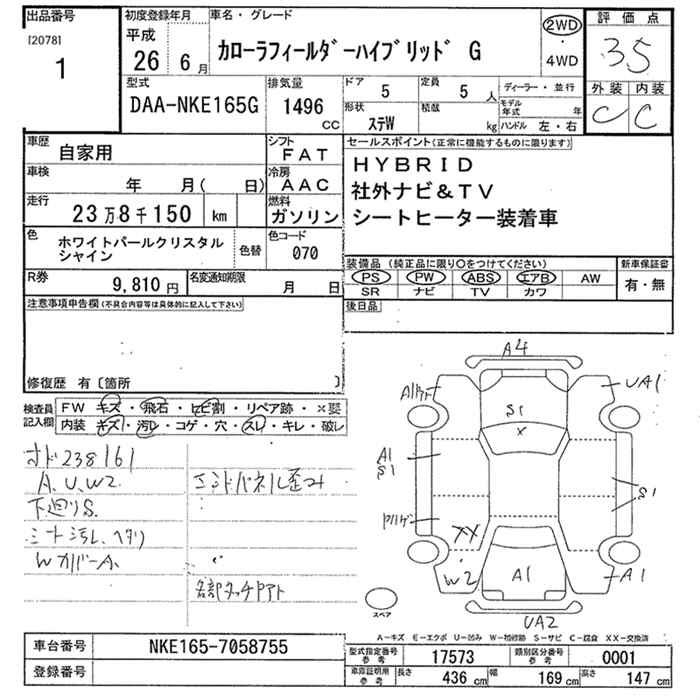 出品番号
[2078]
1
初度登録年月
平成
26 6月
車名・グレード
カローラフィールダーハイブリッド G
2WD
・
4WD
評価点
3.5
外装 内装
C C
型式
DAA-NKE165G
排気量
1496 CC
ドア 5
定員 5 人
ディーラー・並行
形状 ステW
積載 kg
モデル年式 年
ハンドル 左・右
車歴 自家用
シフト FAT
車検 年 月( 日)
冷房 AAC
走行 23万8千150 km
燃料 ガソリン
色 ホワイトパールクリスタルシャイン
色替
色コード 070
R券 9,810円
名変通知期限 月 日
セールスポイント(正常に機能するものに限ります)
HYBRID
社外ナビ&TV
シートヒーター装着車
装備品 (純正品に限り○をつけてください)
新車保証書
PS PW ABS エアB AW
SR ナビ TV カワ
有・無
後日品
注意事項申告欄(不具合内容等は具体的に記入して下さい)
修復歴 有〔箇所 〕
検査員記入欄
FW キズ・飛石・ヒビ割・リペア跡・×要
内装 キズ・汚レ・コゲ・穴・スレ・キレ・破レ
オド238161
A.U.W2.
下廻りS.
シート汚レ.ヘタリ
Wカバー A.
エンドパネル歪ミ
各部タッチアト
A4
UA1
S1
X
A1
S1
S1
XX
W2
A1
A1
UA2
スペア
A-キズ E-エクボ U-凹み W-補修跡 S-サビ C-腐食 XX-交換済
車台番号 NKE165-7058755
登録番号
型式指定番号 参考 17573
類別区分番号 参考 0001
車庫証明用 参考 長さ 436 cm 幅 169 cm 高さ 147 cm